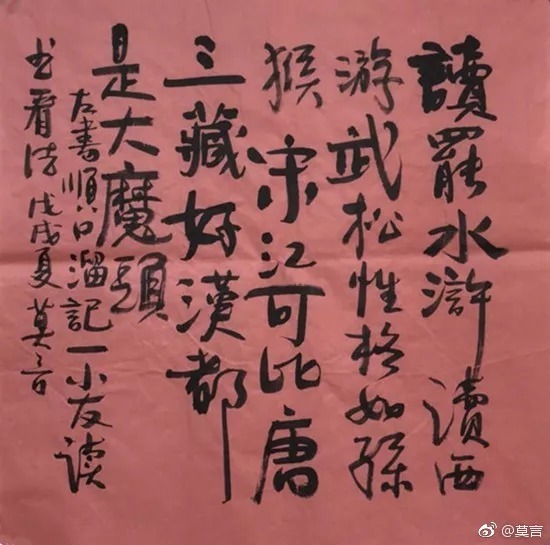 讀罷水滸讀西
游武松性格如孫
猴宋江可比唐
三藏好漢都
是大魔頭
左書順口溜記一小友读
书看法戊戌夏莫言
@莫言